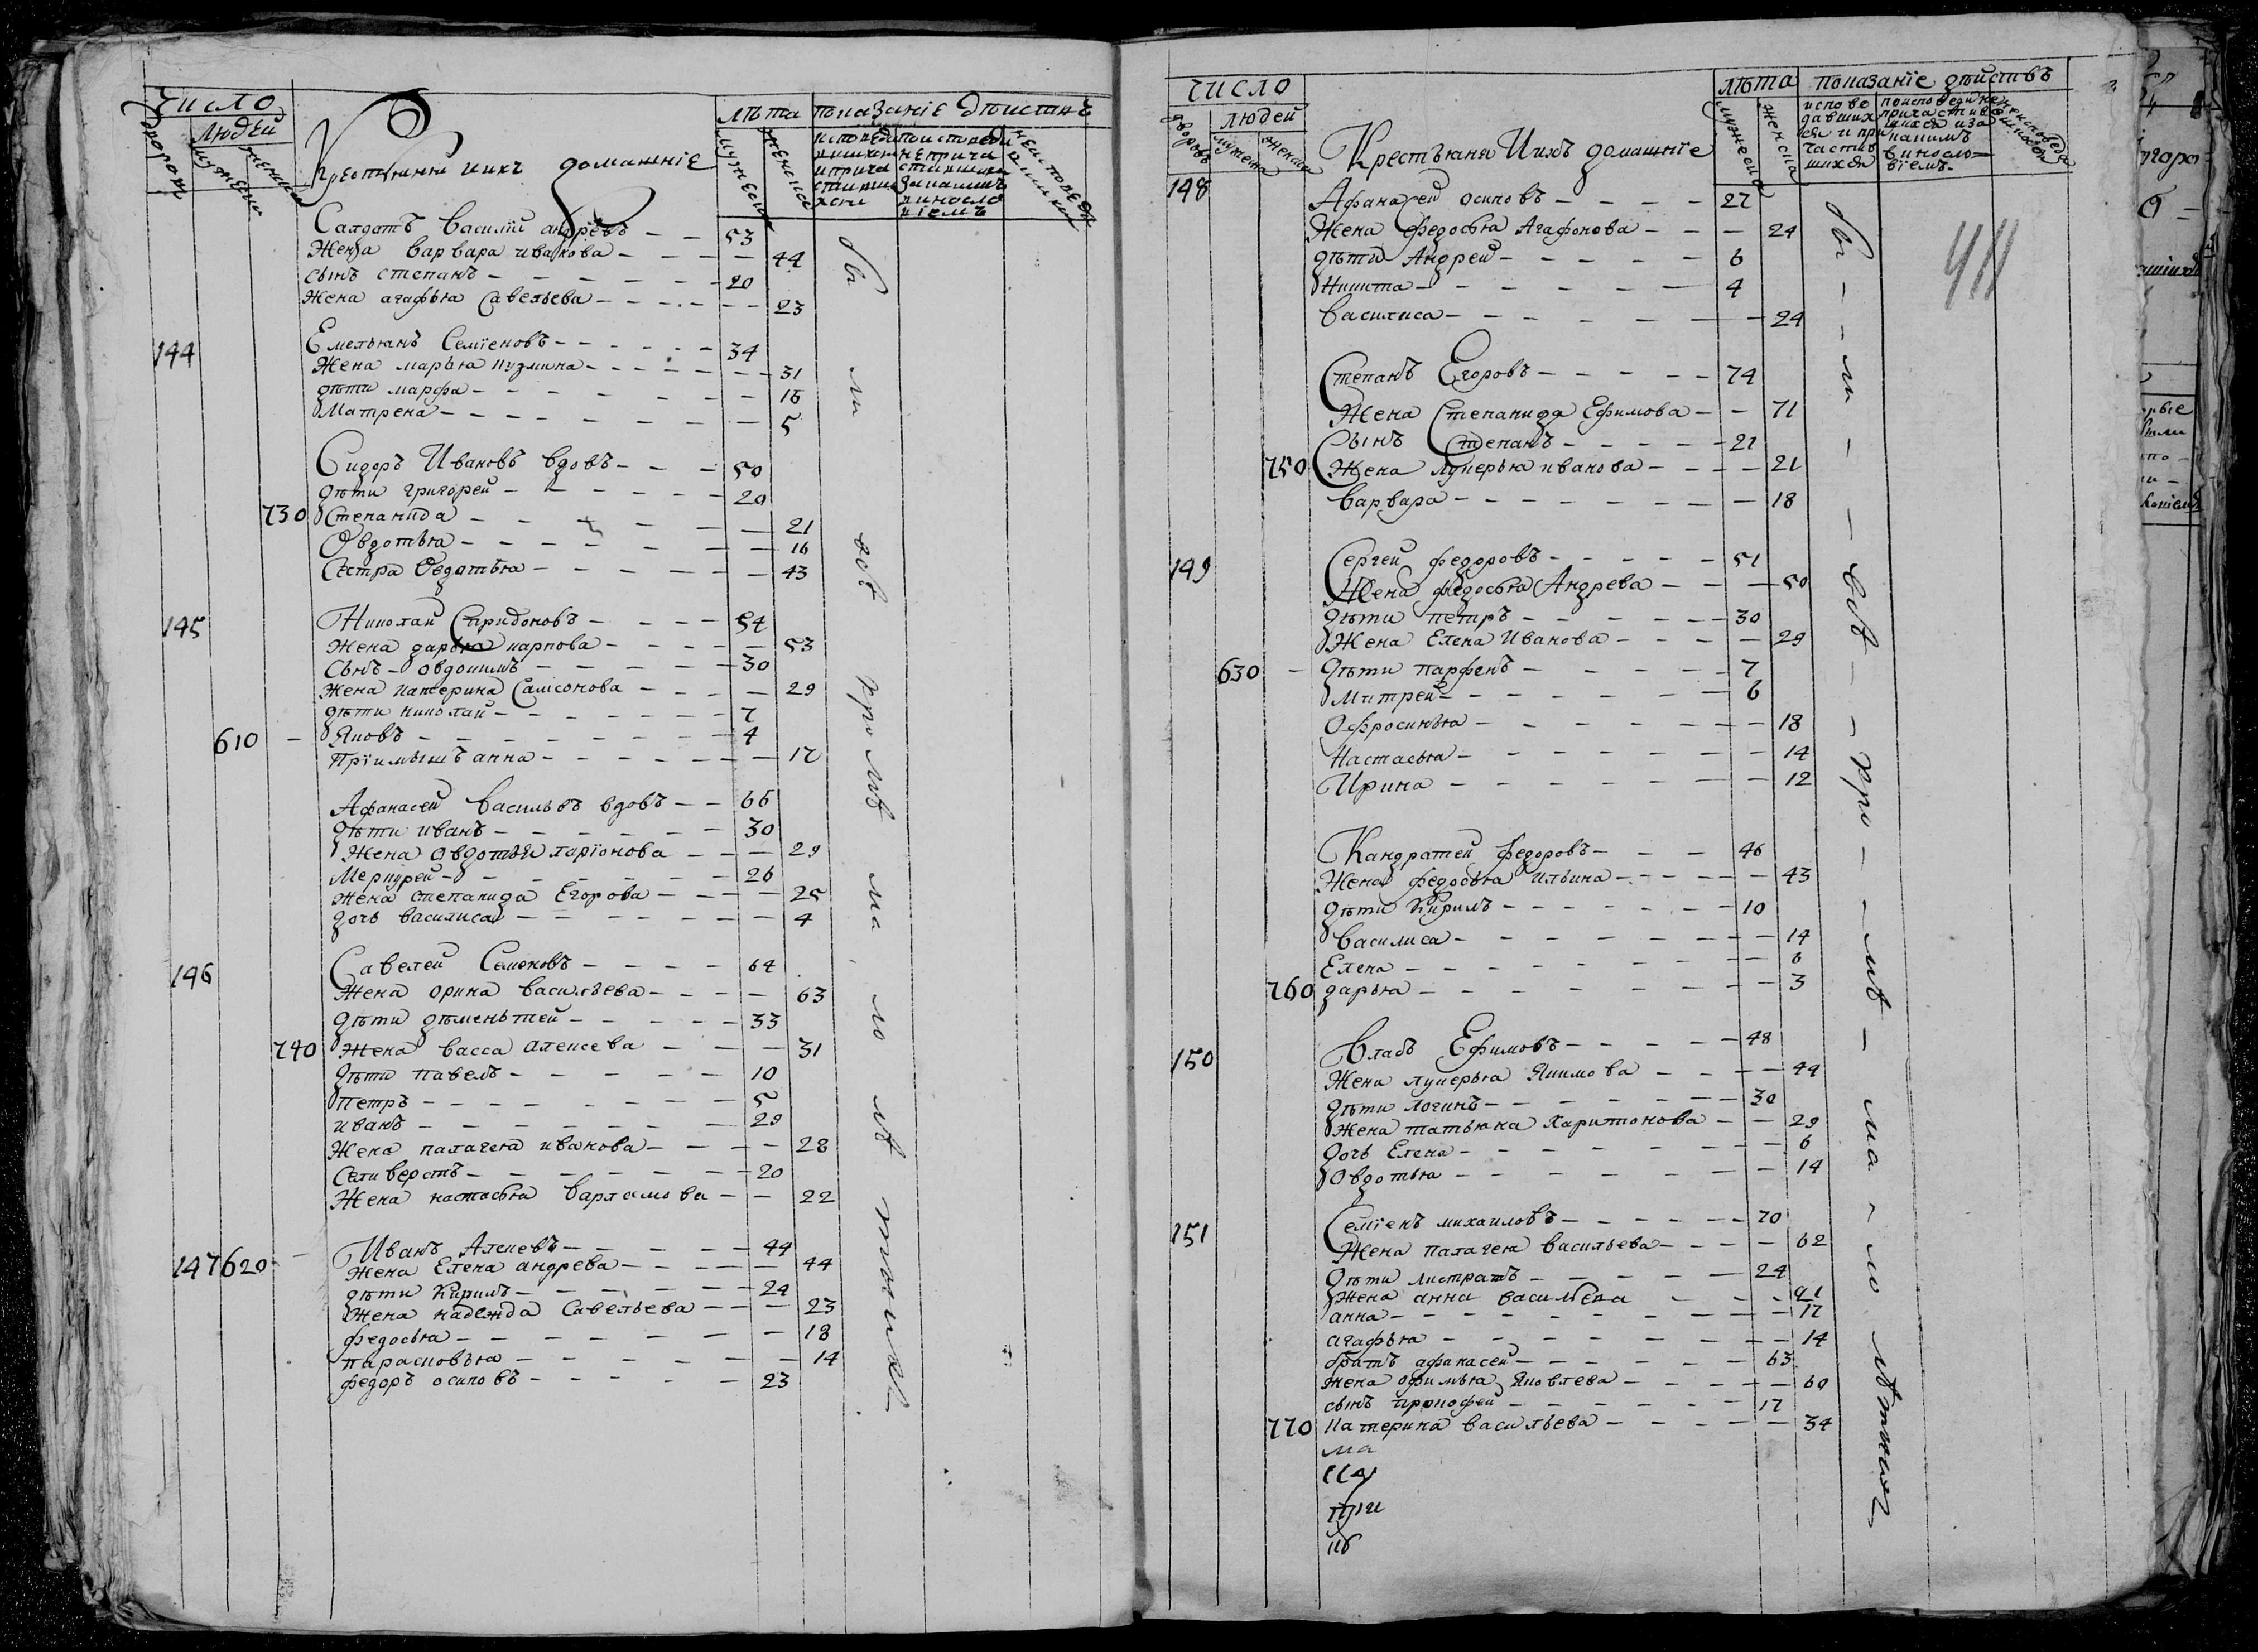 число
людей
дворовъ
мужеска
женска
Крестьяни ихъ домашнїе
лѣта
мужеска
женска
показанїе дѣиствъ
Салдатъ Василїй андрѣевъ 53
Жена варвара ивакова 44
сынъ степанъ 20
жена агафья Савельева 23
144 Емельянъ Семїеновъ 34
Жена марья кузмина 31
дѣти марфа 16
Матрена 5
Сидоръ Ивановъ вдовъ 50
дѣти григорей 20
730 Степанида 21
Овдотья 16
Сестра Овдотья 43
145 Николаи Спридоновъ 54
Жена дарья карпова 53
Сынъ овдокимъ 30
Жена катерина Самсонова 29
дѣти николаи 7
610 Яковъ 4
Прїимышъ анна 17
Афанасеи Васильвъ вдовъ 66
дѣти иванъ 30
Жена Овдотья ларїонова 29
Меркурей 26
жена степанида Егорова 25
дочь василиса 4
146 Савелеи Семеновъ 64
Жена орина васильева 63
дѣти дѣментеи 33
740 жена васса алексева 31
дѣти павелъ 10
петръ 5
иванъ 29
Жена палагея иванова 28
Селиверстъ 20
Жена настасья варламова 22
147 620 Иванъ Алексевъ 44
Жена Елена андрева 44
дѣти Кирилъ 24
Жена надежда Савельева 23
федосья 18
парасковья 14
федоръ осиповъ 23
бы ли всѣ кро мѣ ма ло лѣ тныхъ
число
людей
дворовъ
мужеска
женска
Крестьяня Ихъ домашнїе
лѣта
мужеска
женска
показанїе дѣиствъ
исповѣ
давших
ся и при
части
шихся
148 Афанасеи осиповъ 27
Жена федосья Агафонова 24
дѣти Андреи 6
Никита 4
Василиса 24
Степанъ Егоровъ 74
Жена Степанида Ефимова 71
Сынъ Степанъ 21
750 Жена лукерья иванова 21
варвара 18
149 Сергеи федоровъ 51
Жена федосья Андрева 50
дѣти петръ 30
Жена Елена Иванова 29
630 дѣти парфенъ 7
Митреи 6
Офросинья 18
Настасья 14
Ирина 12
Кандратеи федоровъ 46
Жена федосья ильина 43
дѣти Кирилъ 10
Василиса 14
Елена 6
760 дарья 3
150 Владъ Ефимовъ 48
Жена лукерья Якимова 44
дѣти логинъ 30
Жена татьяна Харитонова 29
Дочь Елена 6
Овдотья 14
151 Семїенъ михаиловъ 70
Жена палагея васильева 62
дѣти листратъ 24
Жена анна василева 21
анна 17
агафья 14
братъ афанасеи 63
жена офимья Яковлева 60
сынъ прокофеи 17
770 катерина васильева 34
ма
при
бы ли всѣ кро мѣ ма ло лѣтныхъ